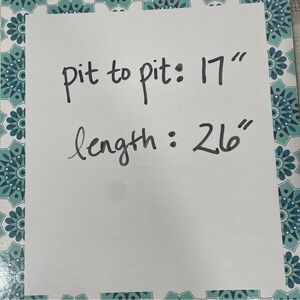 pit to pit: 17"
length: 26"